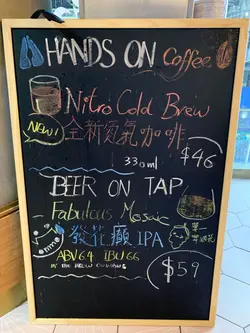 HANDS ON Coffee
Nitro Cold Brew
NEW!
全新氮氣咖啡
330ml
$46
BEER ON TAP
Fabulous Mosaic
發花癲 IPA
ABV 6.4 IBU 66
$59